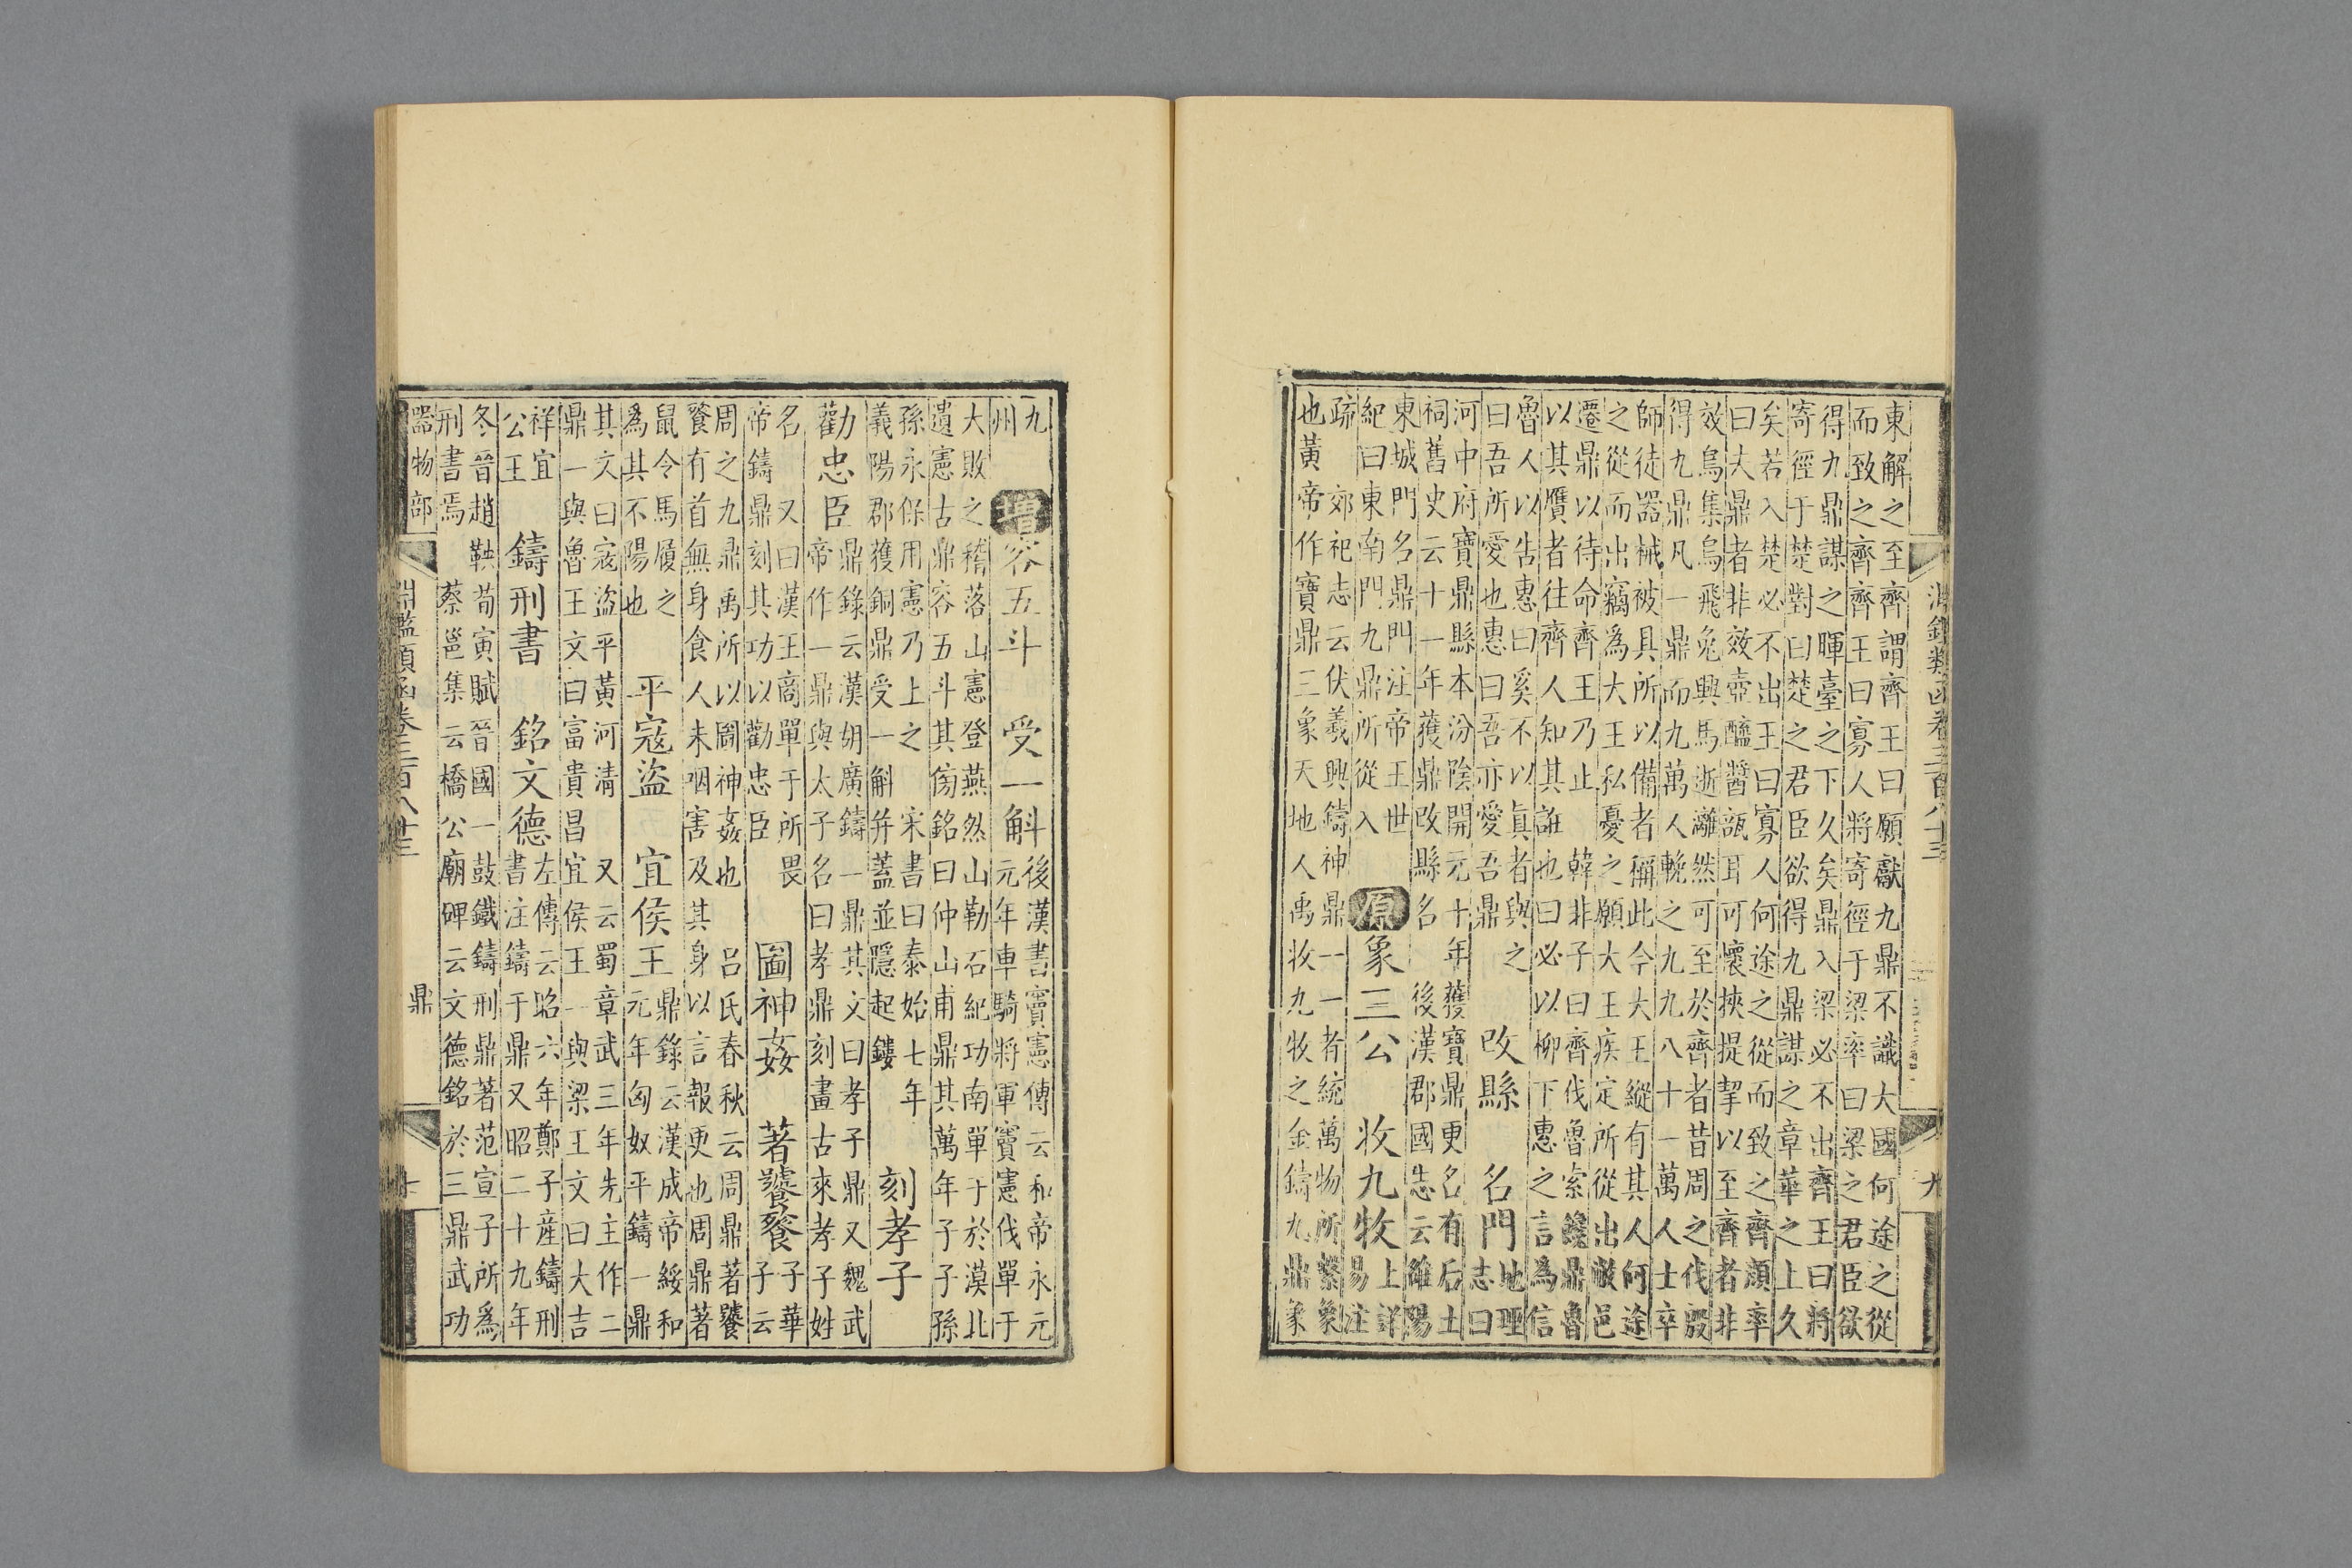 淵鑑類函卷三百八十三
九
東解之至齊謂齊王曰願獻九鼎不識大國何途之從
而致之齊齊王曰寡人將寄徑于梁率曰梁之君臣欲
得九鼎謀之暉臺之下久矣鼎入梁必不出齊王曰將
寄徑于楚對曰楚之君臣欲得九鼎謀之章華之上久
矣若入楚必不出王曰寡人何途之從而致之齊顏率
曰大鼎者非效壺醯醬瓿耳可懷挾提挈以至齊者非
效烏集烏飛兔興馬逝灕然可至於齊者昔周之伐殷
得九鼎凡一鼎而九萬人輓之九九八十一萬人士卒
師徒器械被具所以備者稱此今大王縱有其人何途
之從而出竊為大王私憂之願大王疾定所從出敝邑
遷鼎以待命齊王乃止 韓非子曰齊伐魯索饞鼎魯
以其贋者往齊人知其誑也曰必以柳下惠之言為信
魯人以告惠曰奚不以真者與之
曰吾所愛也惠曰吾亦愛吾鼎
改縣 名門
地理
志曰
河中府寶鼎縣本汾陰開元十年獲寶鼎更名有后土
祠舊史云十一年獲鼎改縣名 後漢郡國志云雒陽
東城門名鼎門注帝王世
紀曰東南門九鼎所從入
原 象三公 收九牧
上詳
易注
疏 郊祀志云伏羲興鑄神鼎一一者統萬物所繫象
也黃帝作寶鼎三象天地人禹收九牧之金鑄九鼎象
九
州
增 容五斗 受一斛
後漢書竇憲傳云和帝永元
元年車騎將軍竇憲伐單于
大敗之稽落山憲登燕然山勒石紀功南單于於漠北
遺憲古鼎容五斗其傍銘曰仲山甫鼎其萬年子子孫
孫永保用憲乃上之 宋書曰泰始七年
義陽郡獲銅鼎受一斛并蓋並隱起鏤
刻孝子
勸忠臣
鼎錄云漢胡廣鑄一鼎其文曰孝子鼎又魏武
帝作一鼎與太子名曰孝鼎刻畫古來孝子姓
名 又曰漢王商單于所畏
帝鑄鼎刻其功以勸忠臣
圖神姦 著饕餮
子華
子云
周之九鼎禹所以圖神姦也 呂氏春秋云周鼎著饕
餮有首無身食人未咽害及其身以言報更也周鼎著
鼠令馬履之
為其不陽也
平寇盜 宜侯王
鼎錄云漢成帝綏和
元年匈奴平鑄一鼎
其文曰寇盜平黃河清 又云蜀章武三年先主作二
鼎一與魯王文曰富貴昌宜侯王一與梁王文曰大吉
祥宜
公王
鑄刑書 銘文德
左傳云昭六年鄭子產鑄刑
書注鑄于鼎又昭二十九年
冬晉趙鞅荀寅賦晉國一鼓鐵鑄刑鼎著范宣子所為
刑書焉 蔡邕集云橋公廟碑云文德銘於三鼎武功
器物部
淵鑑類函卷三百八十三
鼎
十